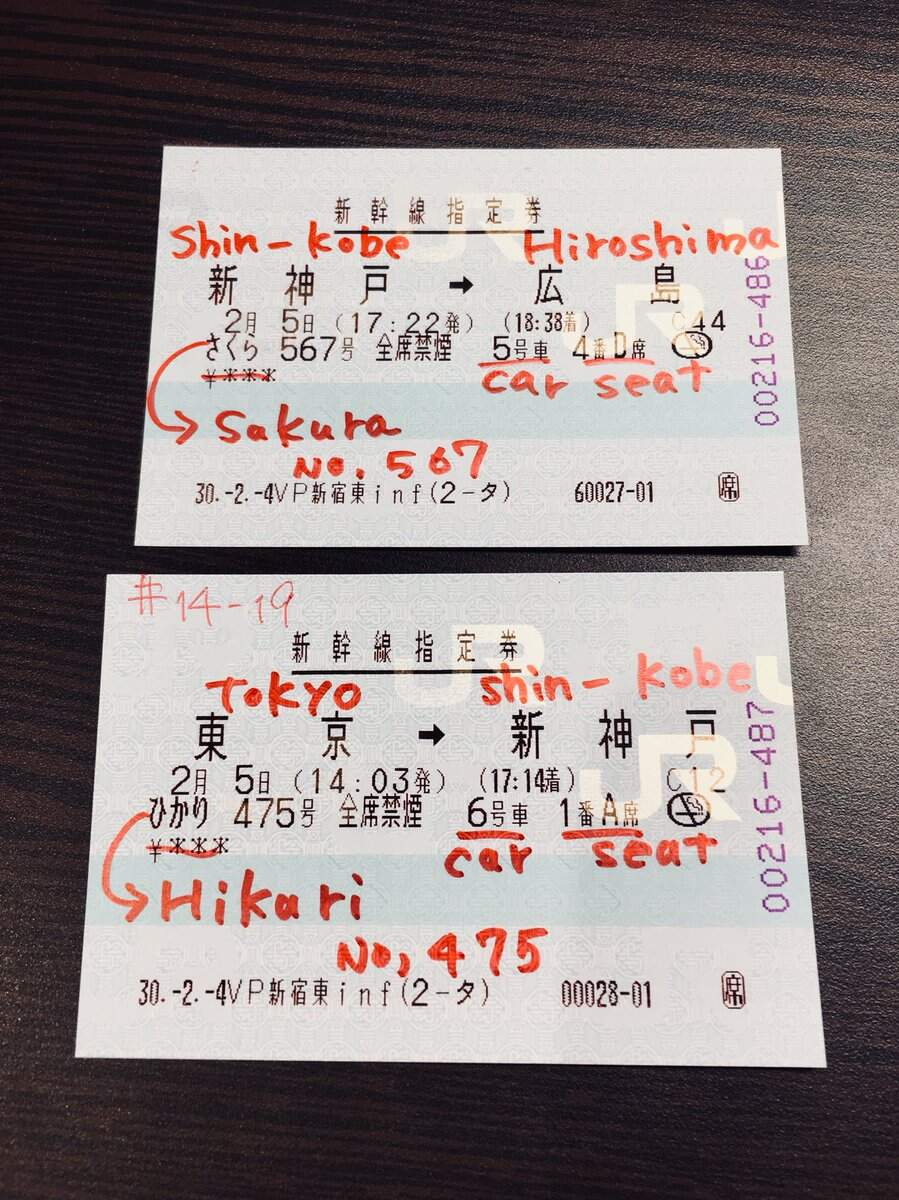 新幹線指定券
Shin-kobe Hiroshima
新神戸 → 広島
2月 5日 (17:22発) (18:38着) C44
さくら 567号 全席禁煙 5号車 4番D席
¥***
car seat
Sakura
No. 567
30.-2.-4VP新宿東inf(2-タ) 60027-01 席
00216-486
JR
#14-19
新幹線指定券
Tokyo shin-kobe
東京 → 新神戸
2月 5日 (14:03発) (17:14着) C12
ひかり 475号 全席禁煙 6号車 1番A席
¥***
car seat
Hikari
No, 475
30.-2.-4VP新宿東inf(2-タ) 00028-01 席
00216-487
JR